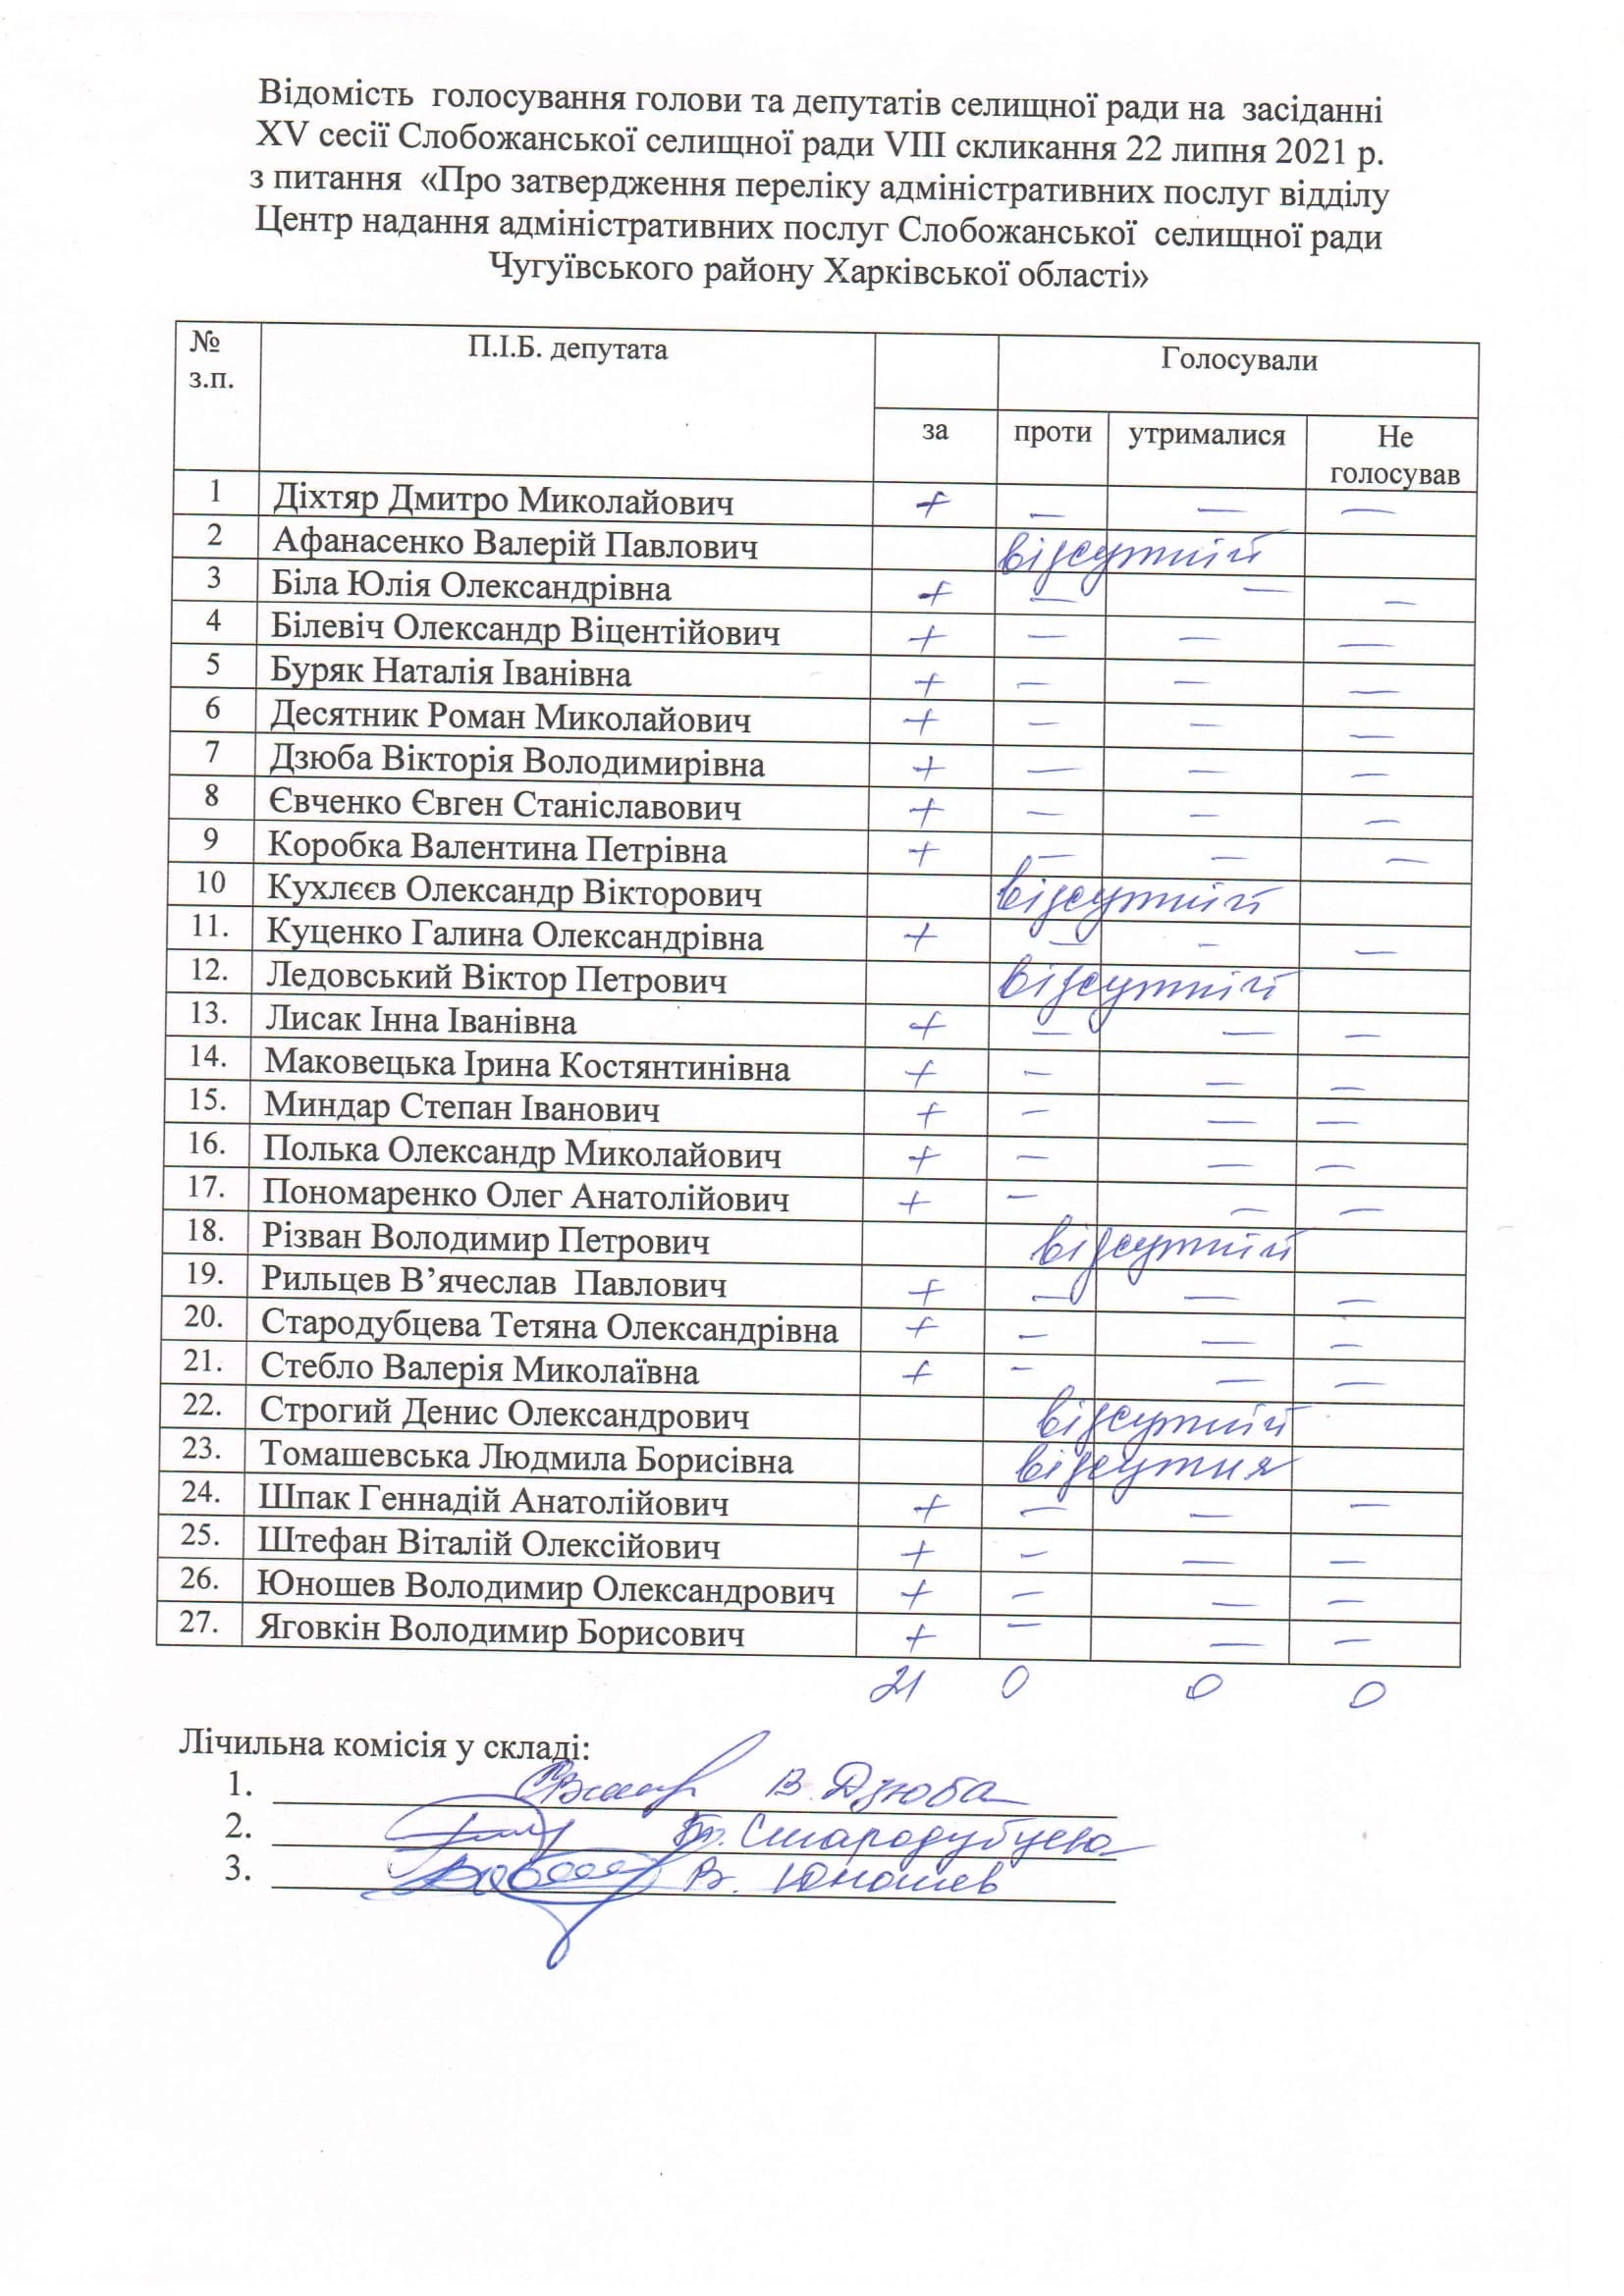 Відомість голосування голови та депутатів селищної ради на засіданні
XV сесії Слобожанської селищної ради VIII скликання 22 липня 2021 р.
з питання «Про затвердження переліку адміністративних послуг відділу
Центр надання адміністративних послуг Слобожанської селищної ради
Чугуївського району Харківської області»
№ з.п. П.І.Б. депутата Голосували
за проти утрималися Не голосував
1 Діхтяр Дмитро Миколайович + — — —
2 Афанасенко Валерій Павлович відсутній
3 Біла Юлія Олександрівна + — — —
4 Білевіч Олександр Віцентійович + — — —
5 Буряк Наталія Іванівна + — — —
6 Десятник Роман Миколайович + — — —
7 Дзюба Вікторія Володимирівна + — — —
8 Євченко Євген Станіславович + — — —
9 Коробка Валентина Петрівна + — — —
10 Кухлєєв Олександр Вікторович відсутній
11. Куценко Галина Олександрівна + — — —
12. Ледовський Віктор Петрович відсутній
13. Лисак Інна Іванівна + — — —
14. Маковецька Ірина Костянтинівна + — — —
15. Миндар Степан Іванович + — — —
16. Полька Олександр Миколайович + — — —
17. Пономаренко Олег Анатолійович + — — —
18. Різван Володимир Петрович відсутній
19. Рильцев В’ячеслав Павлович + — — —
20. Стародубцева Тетяна Олександрівна + — — —
21. Стебло Валерія Миколаївна + — — —
22. Строгий Денис Олександрович відсутній
23. Томашевська Людмила Борисівна відсутня
24. Шпак Геннадій Анатолійович + — — —
25. Штефан Віталій Олексійович + — — —
26. Юношев Володимир Олександрович + — — —
27. Яговкін Володимир Борисович + — — —
21 0 0 0
Лічильна комісія у складі:
1. В. Дзюба
2. Стародубцева
3. В. Юношев